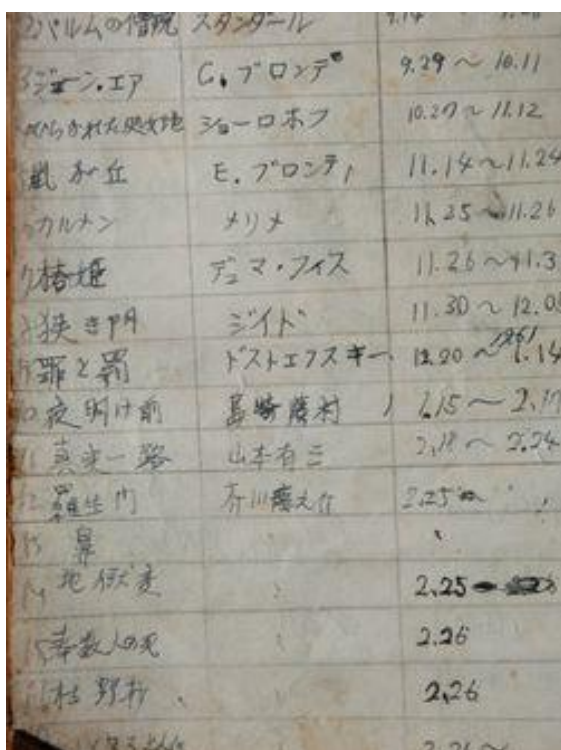 2)パルムの僧院 スタンダール 9.14
3)ジェーン・エア C. ブロンテ 9.29〜10.11
ひらかれた処女地 ショーロホフ 10.27〜11.12
嵐が丘 E. ブロンテ 11.14〜11.24
カルメン メリメ 11.25〜11.26
7)椿姫 デュマ・フィス 11.26〜11.3
狭き門 ジイド 11.30〜12.0
罪と罰 ドストエフスキー 12.20〜1961 1.14
10夜明け前 島崎藤村 1.15〜2.1
11真実一路 山本有三 2.18〜2.24
12羅生門 芥川龍之介 2.25〜
13 鼻 〃
14 地獄変 〃 2.25
15奉教人の死 〃 2.26
16枯野抄 〃 2.26
2.26